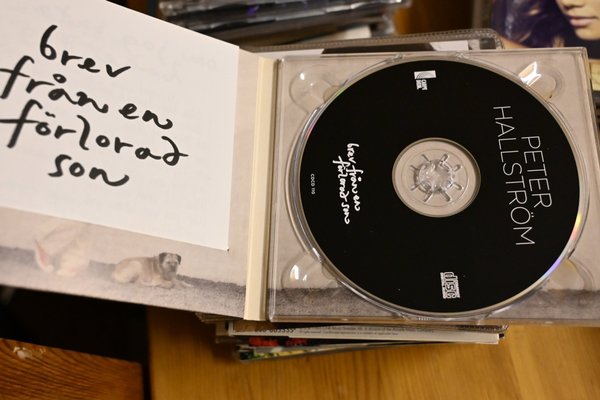 brev
från en
förlorad
son
PETER
HALLSTRÖM
brev från en
förlorad son
CDCD 110
disc